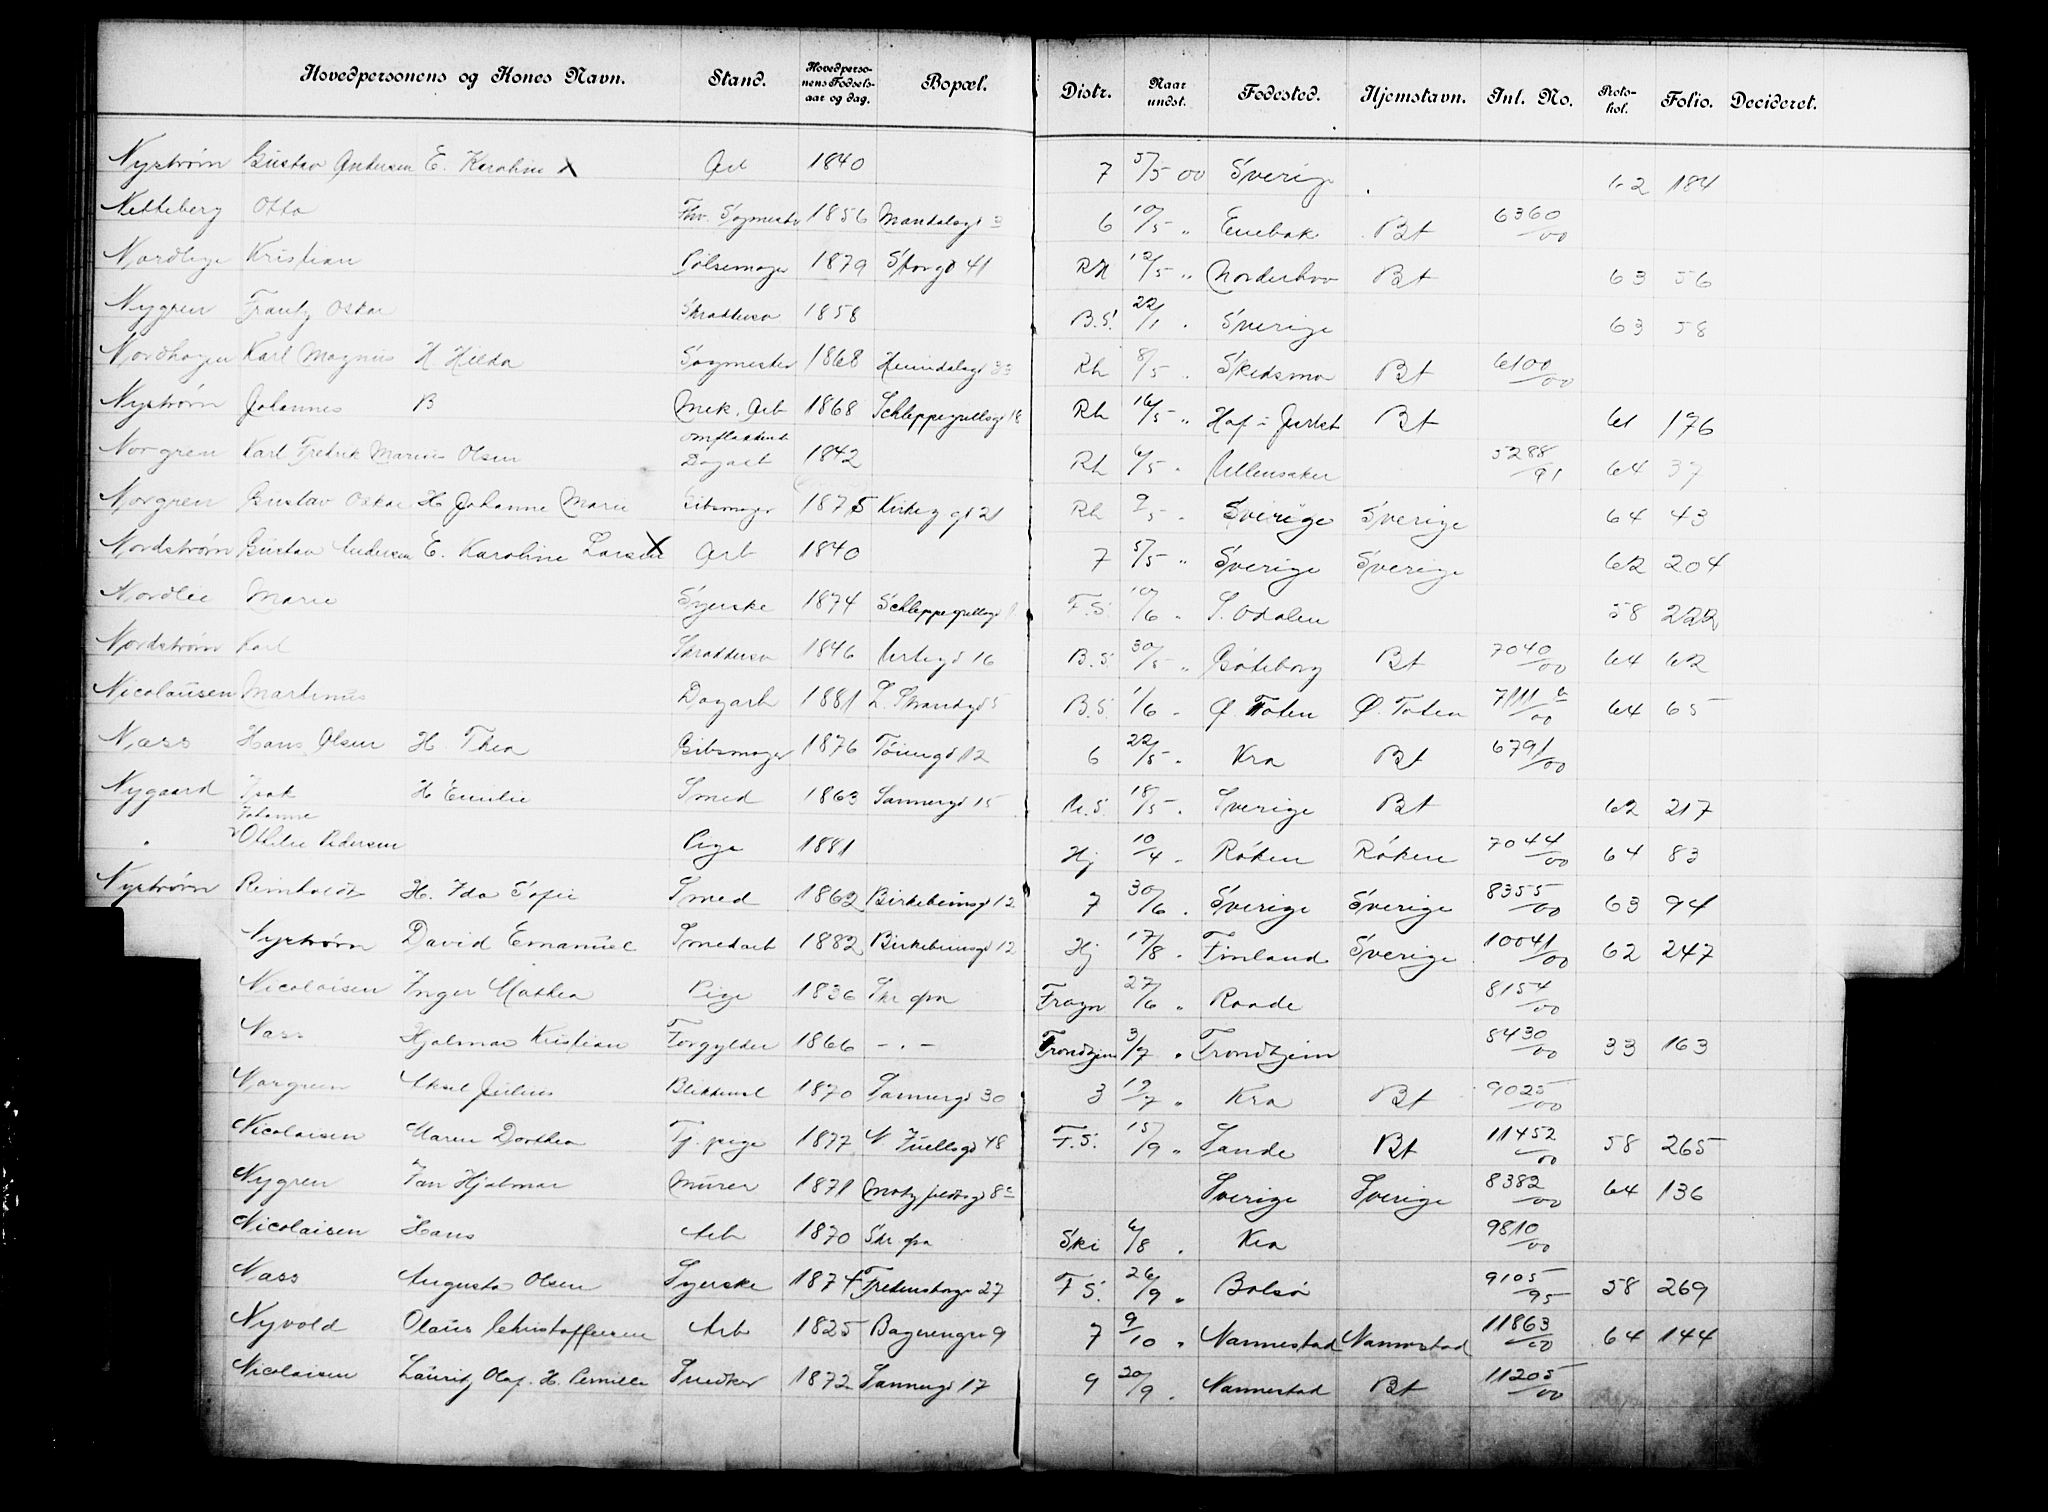 Hovedpersonens og Kones Navn. Stand. Hovedpersonens Fødselsaar og dag. Bopæl. Distr. Naar undst. Fødested. Hjemstavn. Inl. No. Protokol. Folio. Decideret.
Nyström Gustav Andersen E. Karoline X Arb 1840 7 5/5 00 Sverige 62 184
Netteberg Otto Fhv. Sagmester 1856 Mandalsgd 3 6 10/5 " Enebak Bt 6360/00
Nordlye Kristian Pølsemager 1879 Storgd 41 RH 12/5 " Norderhov Bt 63 56
Nygren Frantz Oskar Skrædersv 1858 B.S. 22/1 " Sverige 63 58
Nordhagen Karl Magnus H Hilda Sagmester 1868 Heimdalsgd 33 Rh 8/5 " Skedsmo Bt 6100/00
Nyström Johannes B Mek. Arb 1868 Schleppegrellsgd 18 Rh 16/5 " Haf i Bt 61 176
Norgren Karl Fredrik Marius Olsen Dagarb 1842 Rh 6/5 " Ullensaker 5288/91 64 37
Norgren Gustav Oskar H Johanne Marie Gibsmager 1875 Kirkeg gd 21 Rh 9/5 " Sverige Sverige 64 43
Nordström Gustav Andersen E. Karoline Larsen X Arb 1840 7 5/5 " Sverige Sverige 62 204
Nordlie Marie Syerske 1874 Schleppegrellsgd F.S. 10/6 " S. Odalen 58 222
Nordström Karl Skrædersv 1846 Urtegd 16 B.S. 30/5 " Göteborg Bt 7040/00 64 62
Nicolausen Martinus Dagarb 1881 L. Strandgd 5 B.S. 1/6 " Ø. Toten Ø. Toten 7111 b/00 64 65
Næss Hans Olsen H. Thea Gibsmager 1876 Töiengd 12 6 22/5 " Kra Bt 6791/00
Nygaard Isak H Emilie Smed 1863 Sannergd 15 U.S. 18/5 " Sverige Bt 62 217
Johanne
" Othilie Pedersen Pige 1881 Hj 10/4 " Röken Röken 7044/00 64 83
Nyström Reinholdt H. Ida Sofie Smed 1862 Birkebeinsgd 12 7 30/6 " Sverige Sverige 8355/00 63 94
Nyström David Emanuel Smedarb 1882 Birkebeinsgd 12 Hj 17/8 " Finland Sverige 10041/00 62 247
Nicolaisen Inger Mathea Pige 1836 Skr. fra Frogn 27/6 " Raade 8154/00
Næss Hjalmar Kristian Forgylder 1866 - " - Trondhjem 3/7 " Trondhjem 8430/00 33 163
Norgreen Aksel Julius Blikkensl 1870 Sannergd 30 3 19/7 " Kra Bt 9025/00
Nicolaisen Maren Dorthea Tj. pige 1877 N Juelsgd 48 F.S. 15/9 " Sande Bt 11452/00 58 265
Nygren Jan Hjalmar Murer 1871 Motzfeldtsgd 8c Sverige Sverige 8382/00 64 136
Nicolaisen Hans Arb 1870 Skr. fra Ski 6/8 " Kra 9810/00
Næss Augusta Olsen Syerske 1874 Fredensborgv 27 F S. 26/9 " Bolsö 9105/95 58 269
Nyvold Olaus Christoffersen Arb 1825 Bagerengen 9 7 9/10 " Nannestad Nannestad 11863/00 64 144
Nicolaisen Lauritz Olaf. H. Pernille Snedker 1872 Sannergd 17 9 20/9 " Nannestad Bt 11205/00